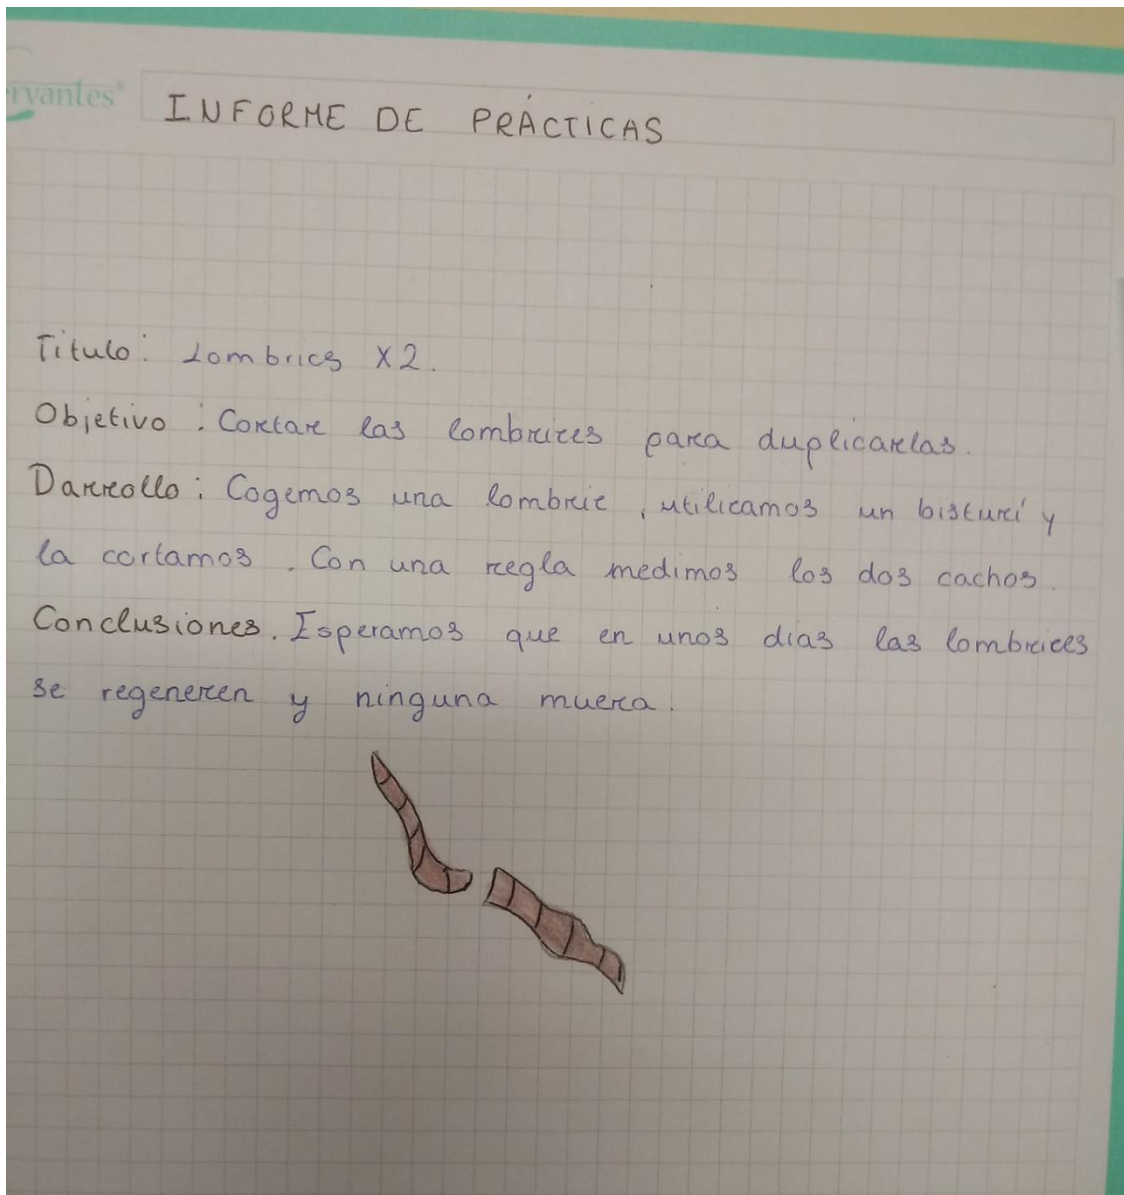 rvantes®
INFORME DE PRÁCTICAS
Titulo: Lombrics X2.
Objetivo: Cortar las lombrices para duplicarlas.
Darrollo: Cogemos una lombriz, utilizamos un bisturí y
la cortamos. Con una regla medimos los dos cachos.
Conclusiones. Esperamos que en unos dias las lombrices
se regeneren y ninguna muera.